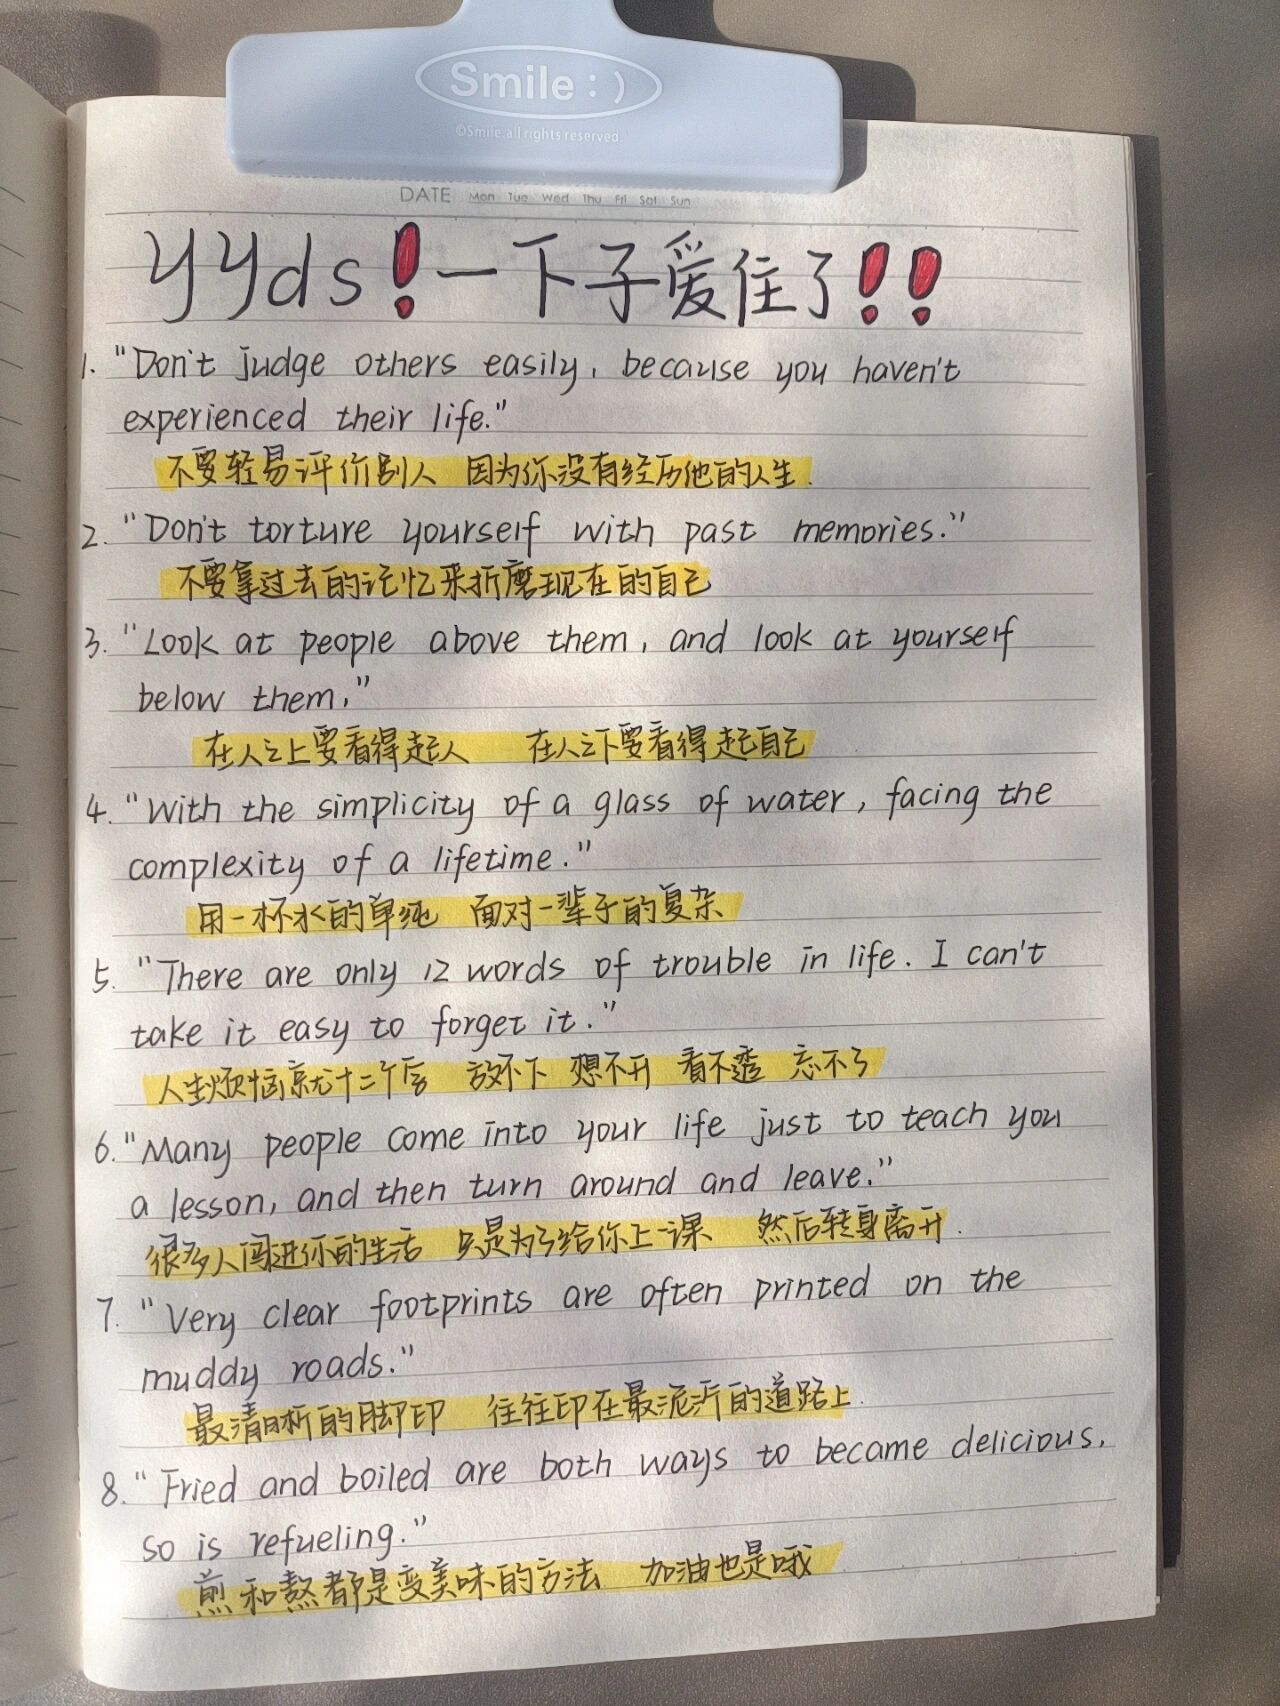 Smile:)
©Smile.all rights reserved
DATE Mon Tue Wed Thu Fri Sat Sun
yyds!一下子爱住了!!
1. "Don't judge others easily, because you haven't
experienced their life."
不要轻易评价别人 因为你没有经历他的人生.
2. "Don't torture yourself with past memories."
不要拿过去的记忆来折磨现在的自己
3. "Look at people above them, and look at yourself
below them."
在人之上要看得起人 在人之下要看得起自己
4. "With the simplicity of a glass of water, facing the
complexity of a lifetime."
用一杯水的单纯 面对一辈子的复杂
5. "There are only 12 words of trouble in life. I can't
take it easy to forget it."
人生烦恼就十二个字 放不下 想不开 看不透 忘不了
6. "Many people come into your life just to teach you
a lesson, and then turn around and leave."
很多人闯进你的生活 只是为了给你上一课 然后转身离开.
7. "Very clear footprints are often printed on the
muddy roads."
最清晰的脚印 往往印在最泥泞的道路上.
8. "Fried and boiled are both ways to became delicious,
so is refueling."
煎和熬都是变美味的方法 加油也是哦